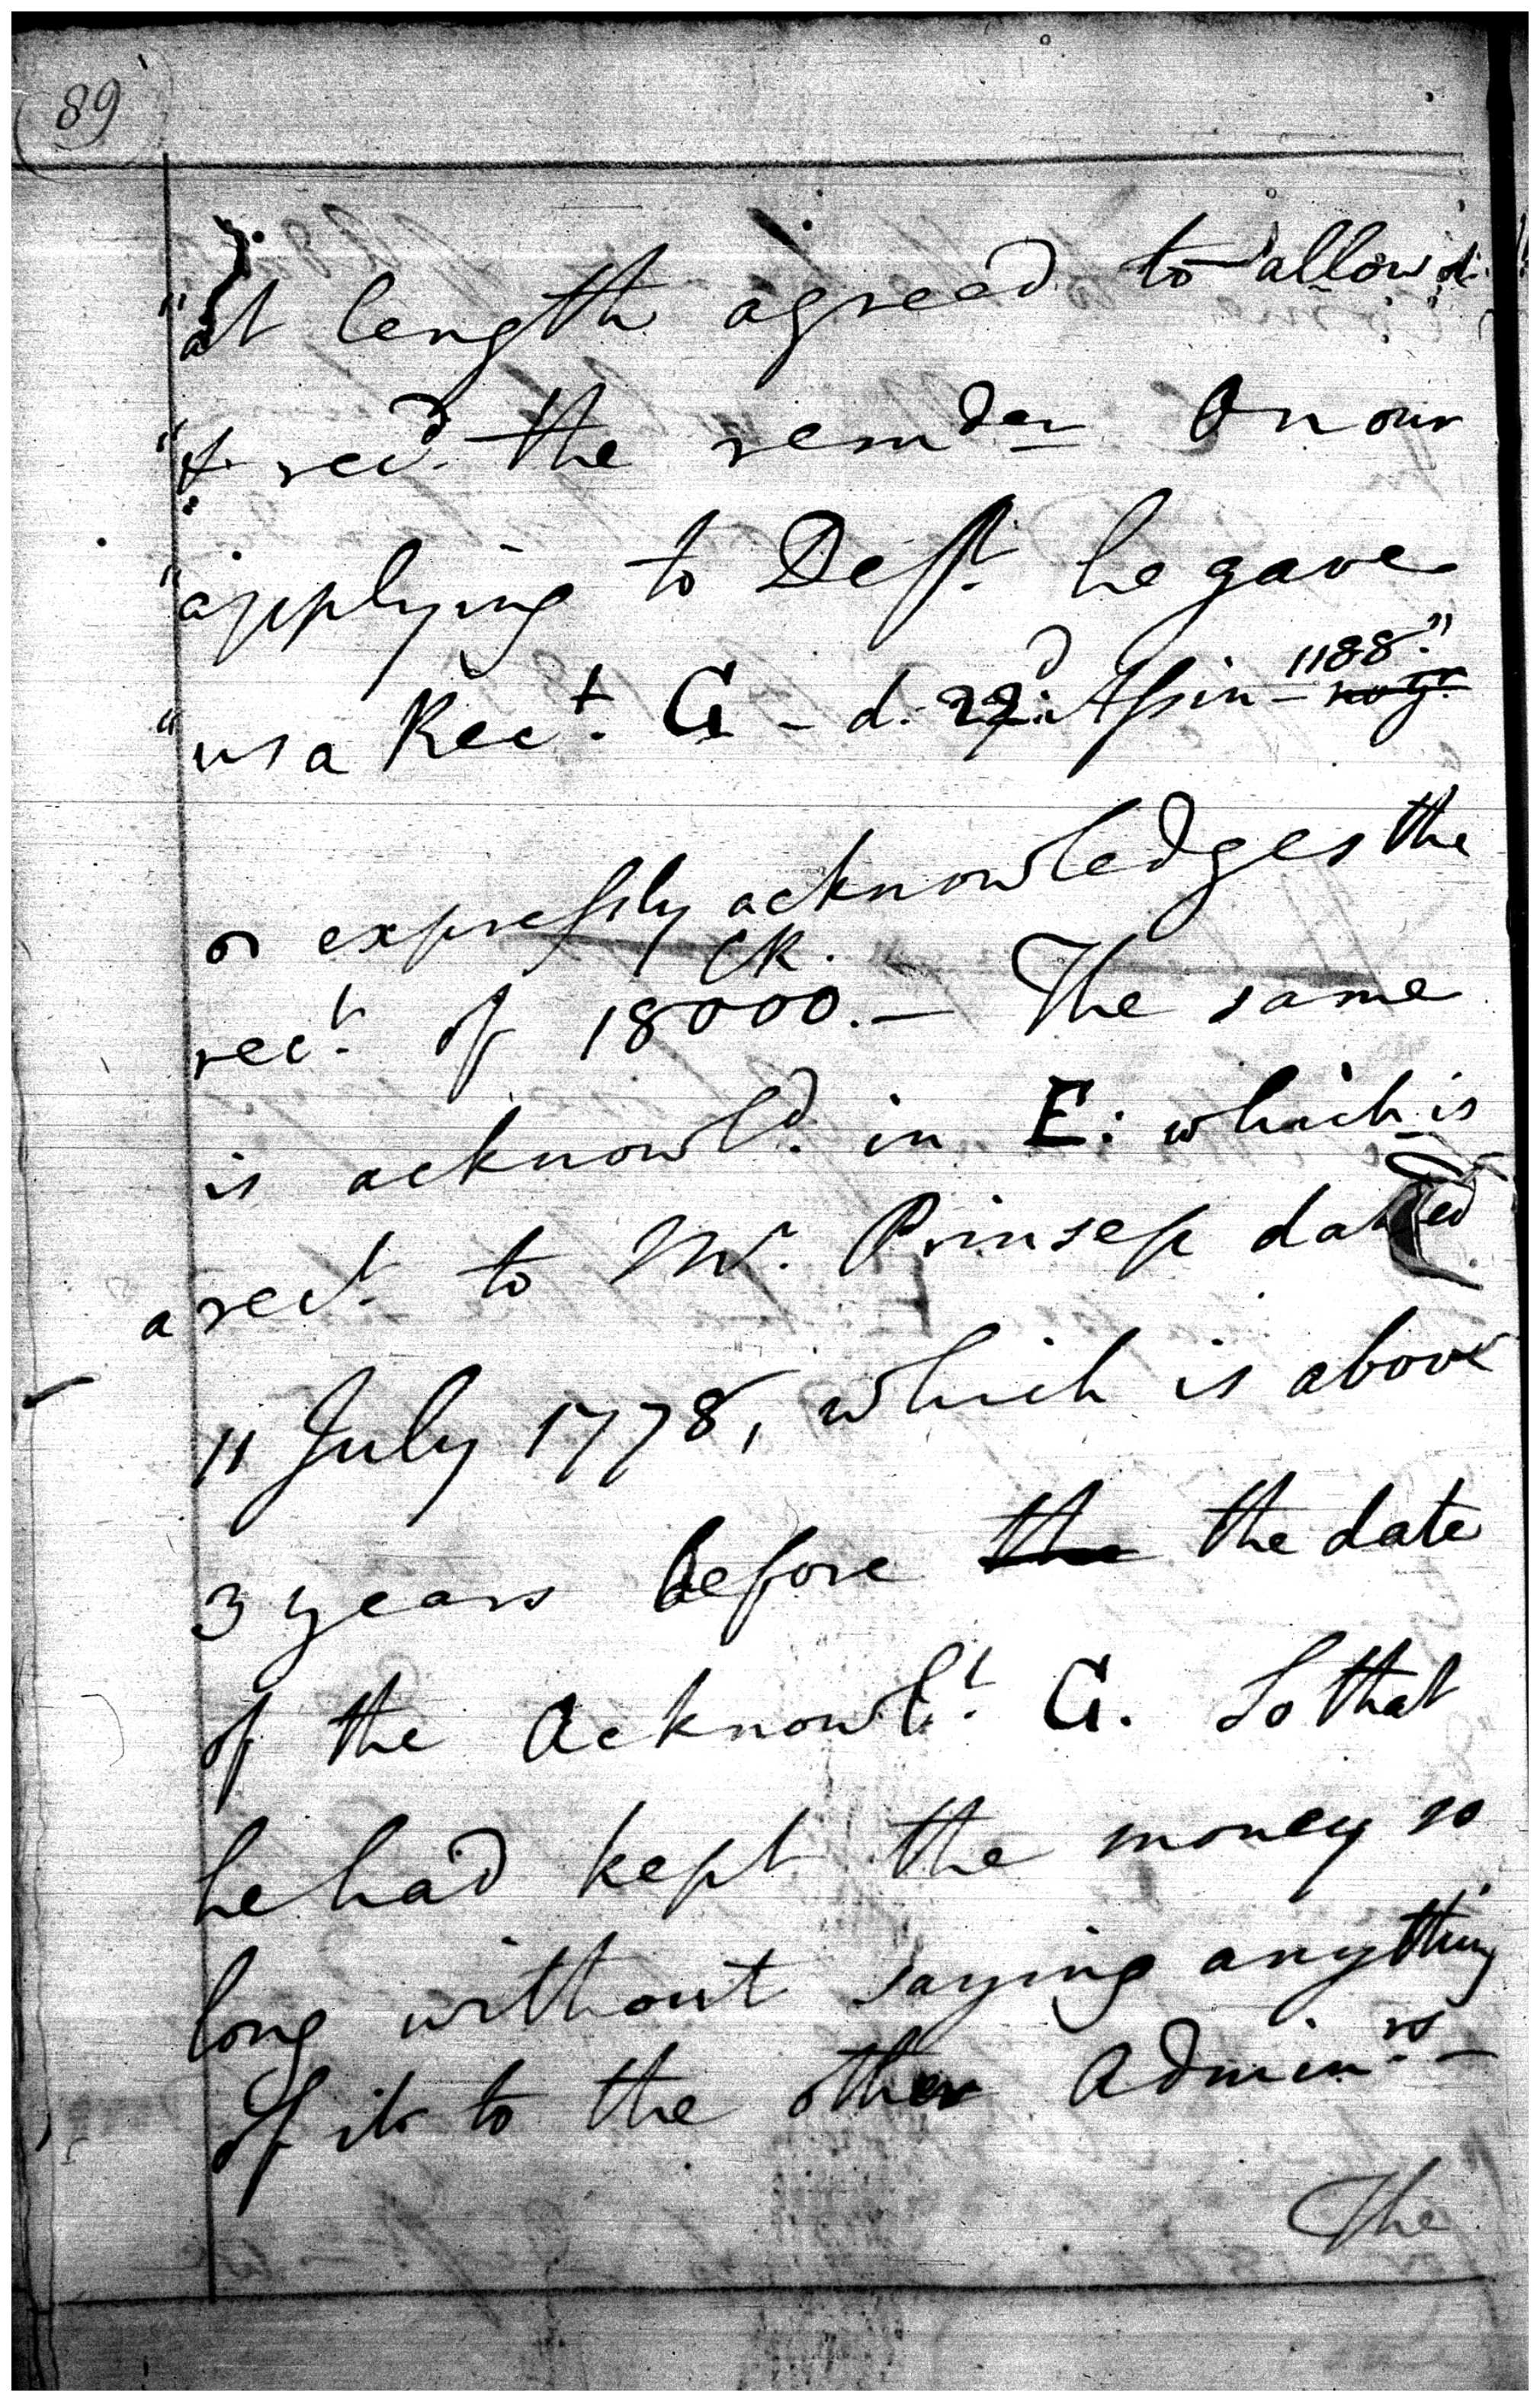 89
"at length agreed to allow it
"& recd. the remder On our
"applying to Deft. he gave
"us a Rect. G - d. 22d. Assin - 1188."
expressly acknowledges the
CR.
rect. of 18000. - The same
is acknowld. in E: which is
a rect. to Mr. Prinsep dated
11 July 1778, which is above
3 years before the the date
of the Acknowlt. G. So that
he had kept the money so
long without saying anything
of it to the other Adminrs. -
The